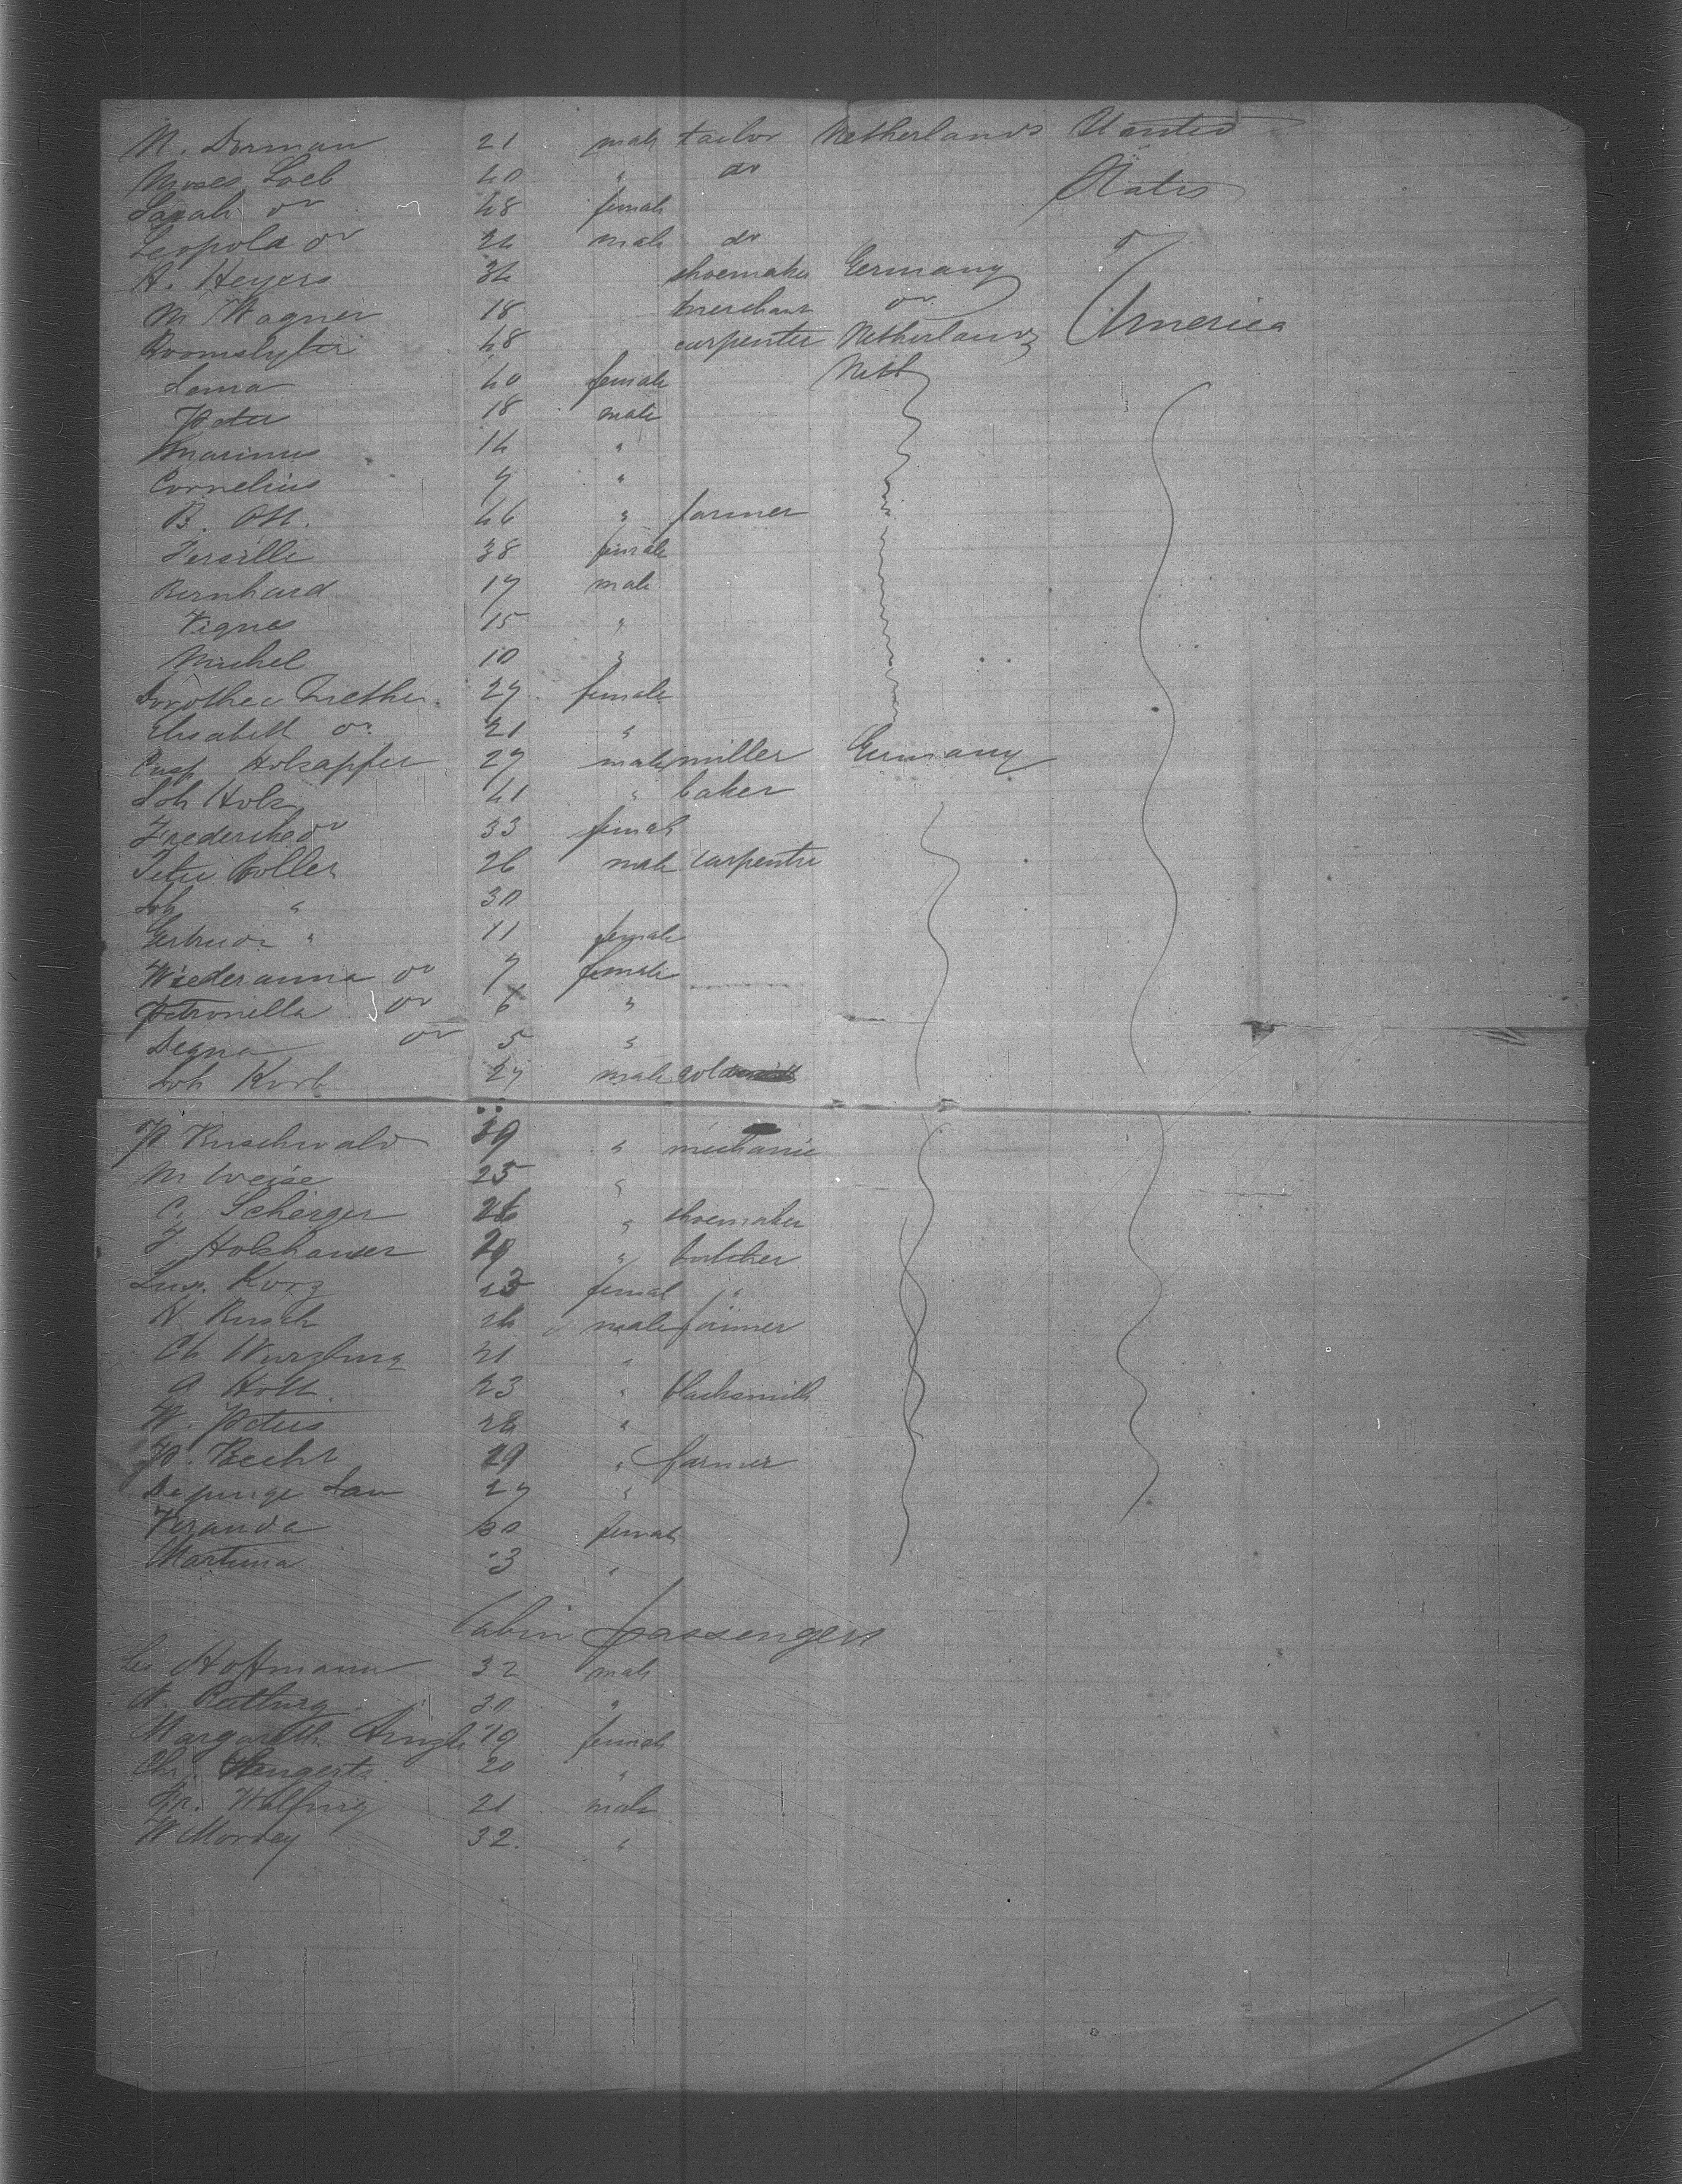 M. Dorman 21 male tailor Netherlands United
Moses Loeb 40 " do States
Sarah do 48 female
Leopold do 24 male do of
H. Heyers 34 shoemaker Germany
M Wagner 18 merchant do America
48 carpenter Netherlands
Lena 40 female Neth
Peter 18 male
Marinus 14 "
Cornelius 9 "
B. Ott. 46 " farmer
38 female
Bernhard 17 male
15 "
Michel 10 "
Dorothea 27 female
Elisabeth do 21 "
Casp Holzapfel 27 male miller Germany
Joh Holz 41 " baker
Frederike do 33 female
Peter Boller 26 male carpenter
Joh " 30
Gertrude " 11 female
do 7 female
Petronilla do 6 "
do 5 "
Joh Korb 27 male
P. Buschwald 39 " mechanic
M Weise 25 "
C. Scherger 26 " shoemaker
F Holzhauser 29 " butcher
Korz 23 female "
H Busch 24 male farmer
Ch Wurzburg 21 "
23 " blacksmith
W. Peters 28 "
P. Becht 29 " farmer
27 "
female
Martina 3 "
Cabin passengers
Leo Hoffmann 32 male
30 "
Margareth 19 female
Chr. 20 "
21 male
W Morday 32. "